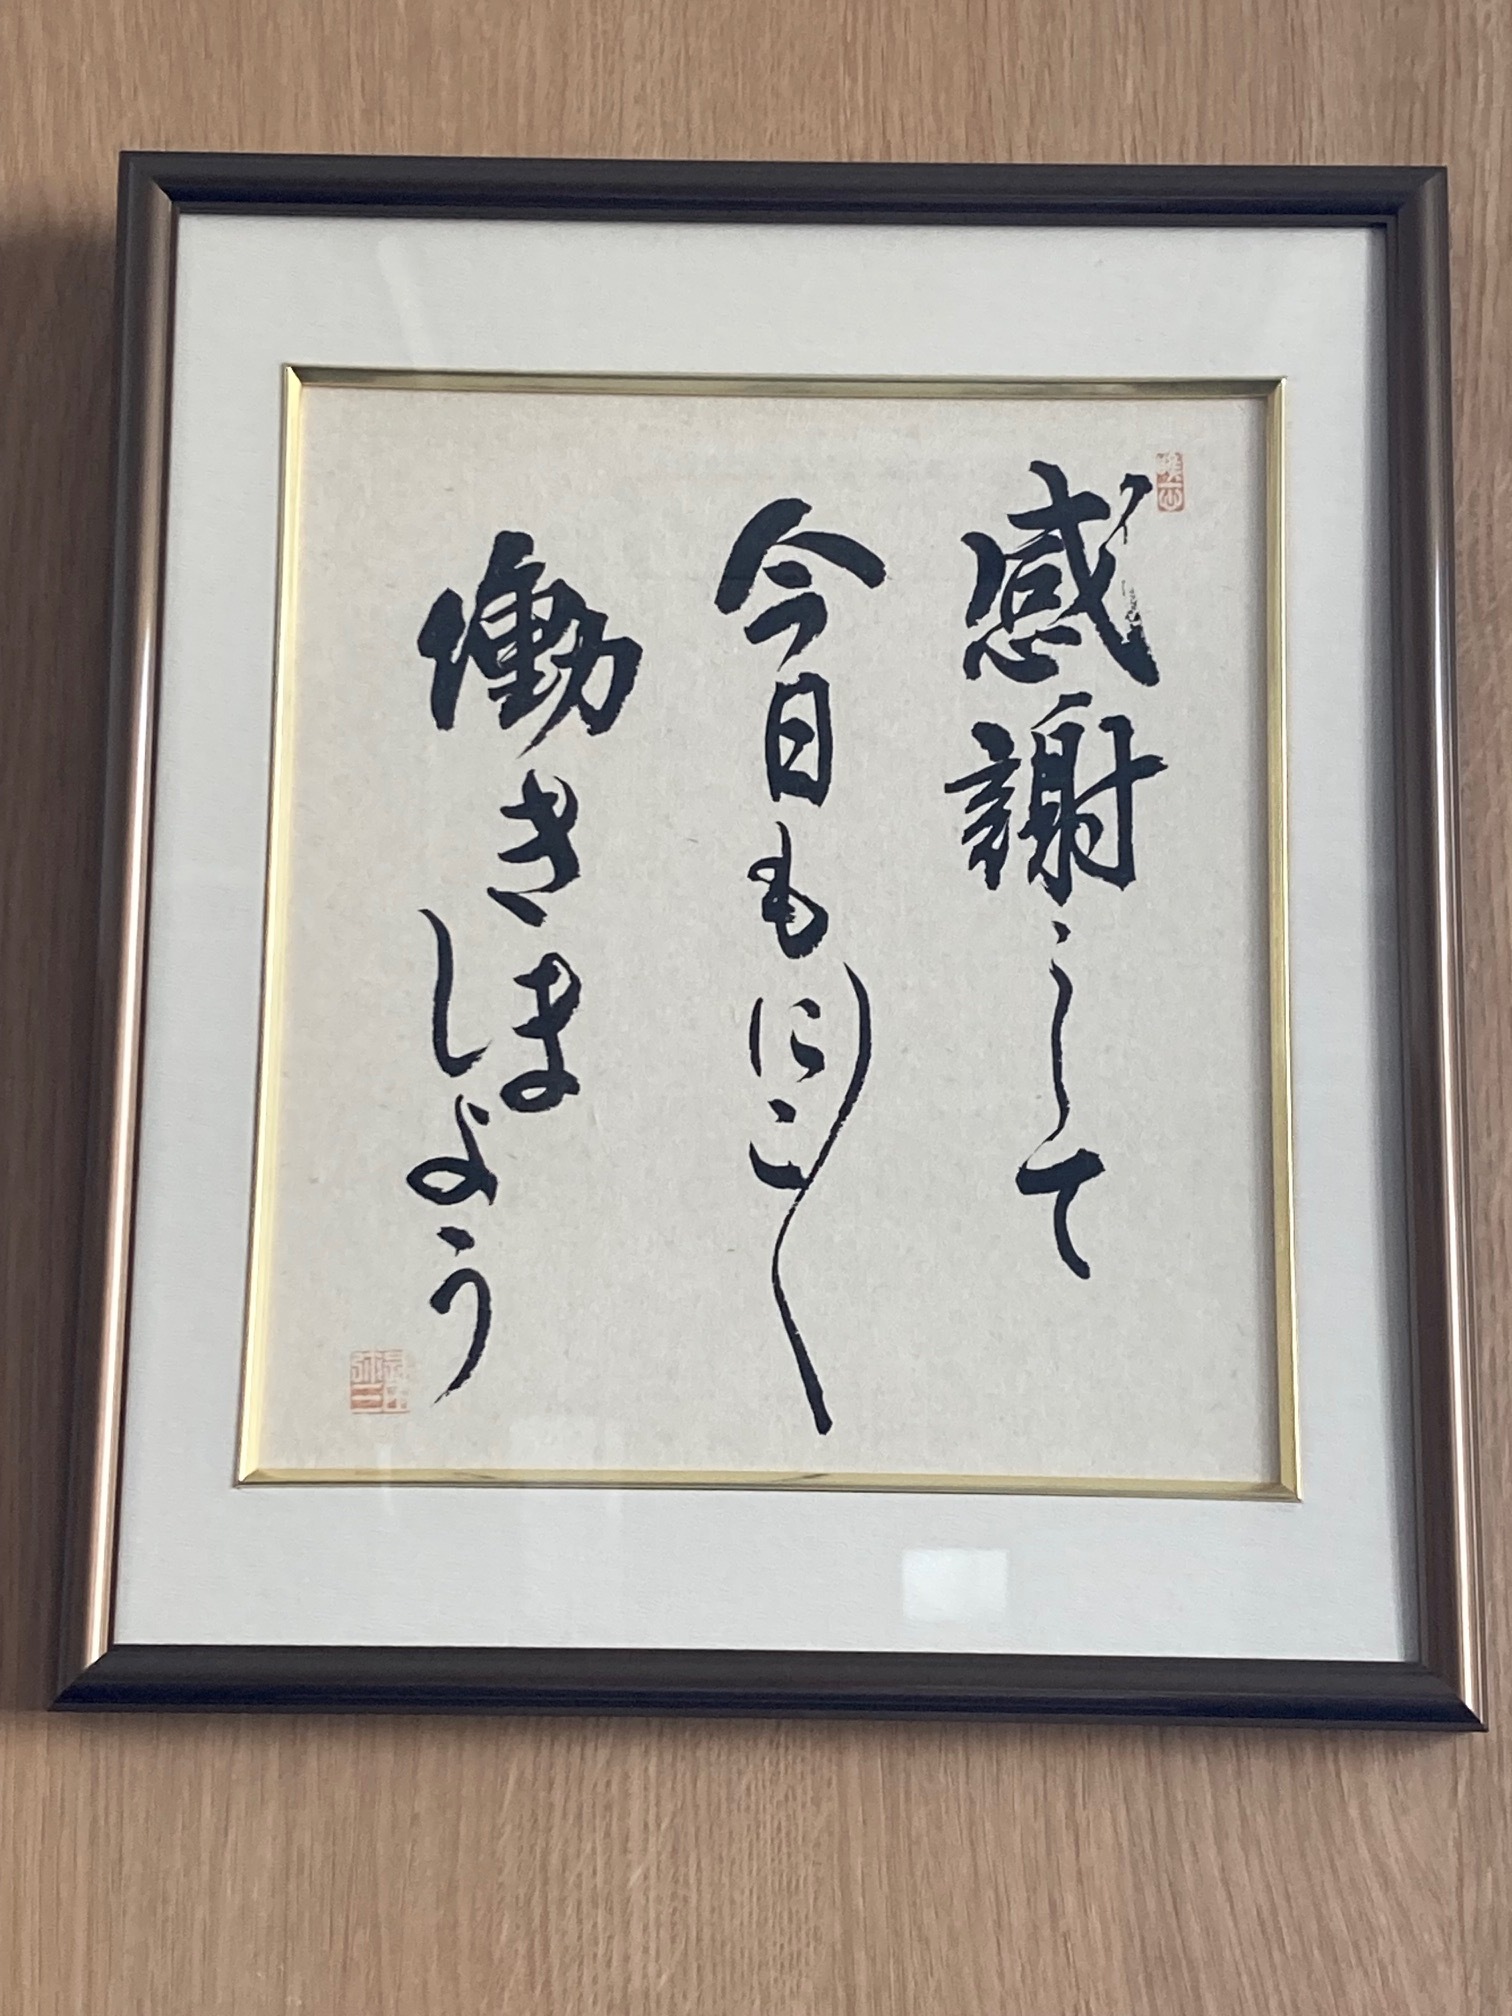 感謝して
今日もにこ〱
働きましょう